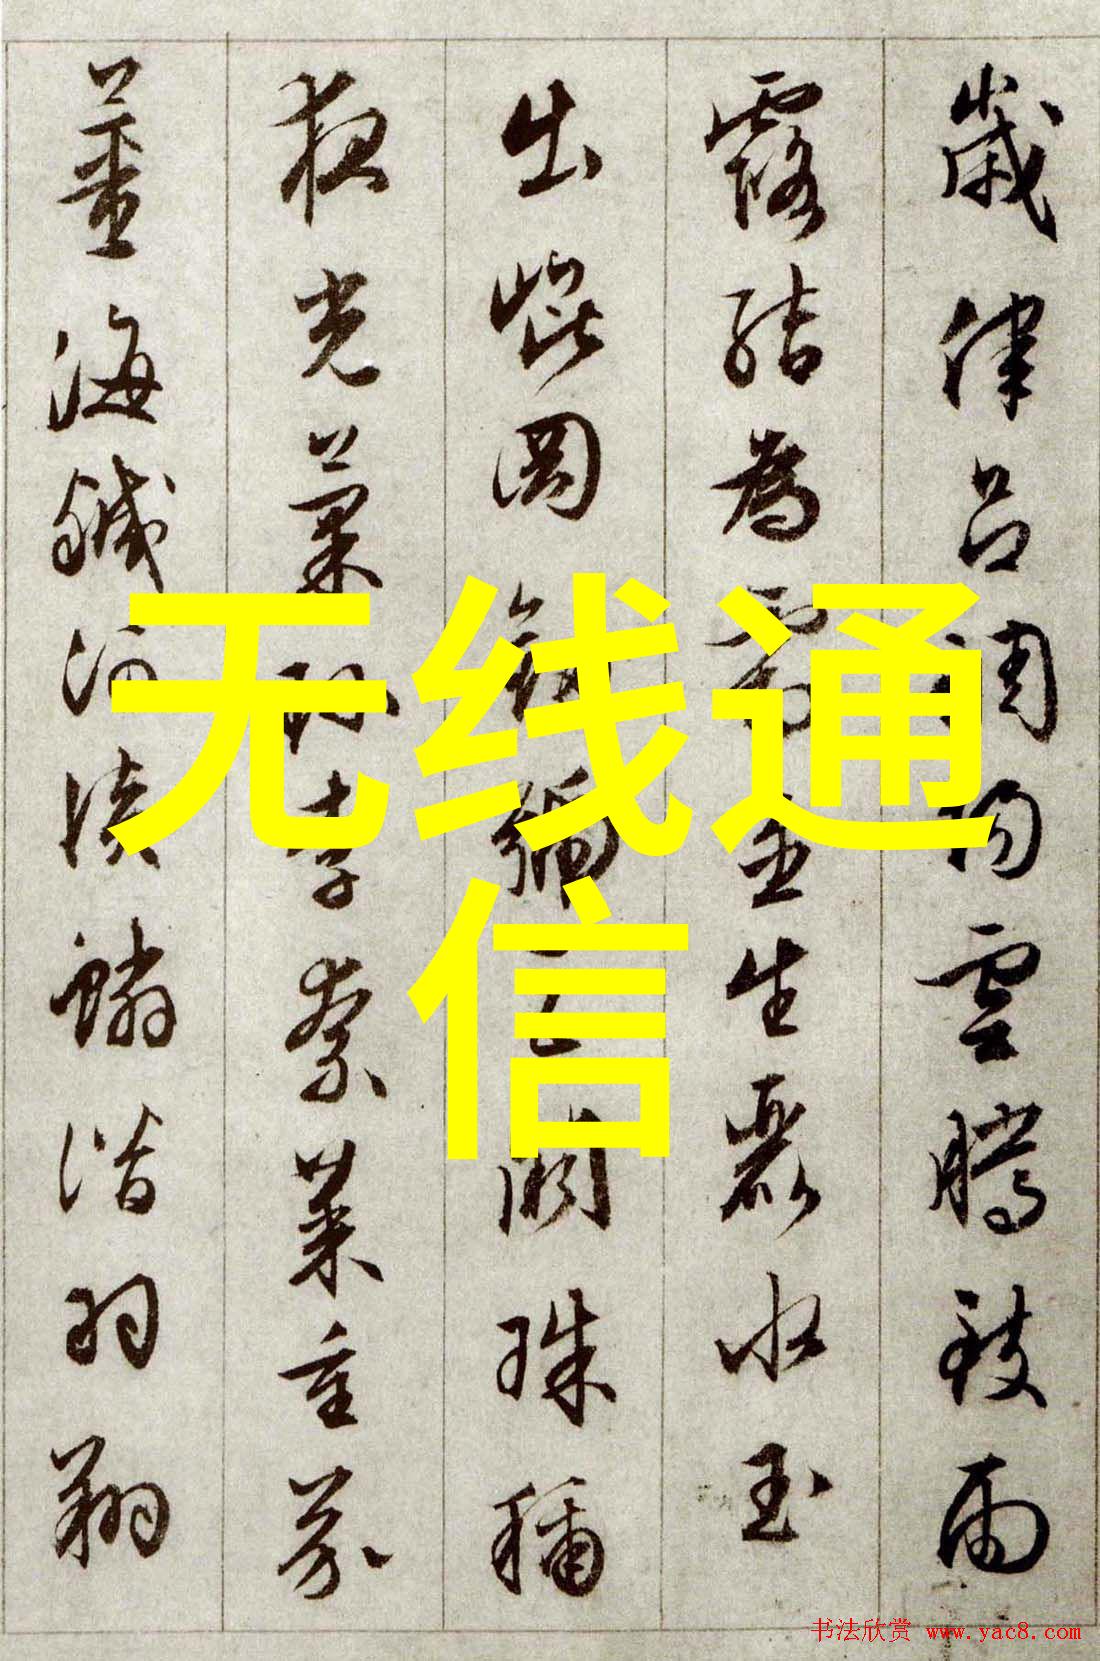 歲律呂調陽雲騰致雨
露結為霜金生麗水玉
出崐岡劍號巨闕珠稱
夜光菓珍李柰菜重芥
薑海鹹河淡鱗潛羽翔
无线通
信
书法欣赏 www.yac8.com